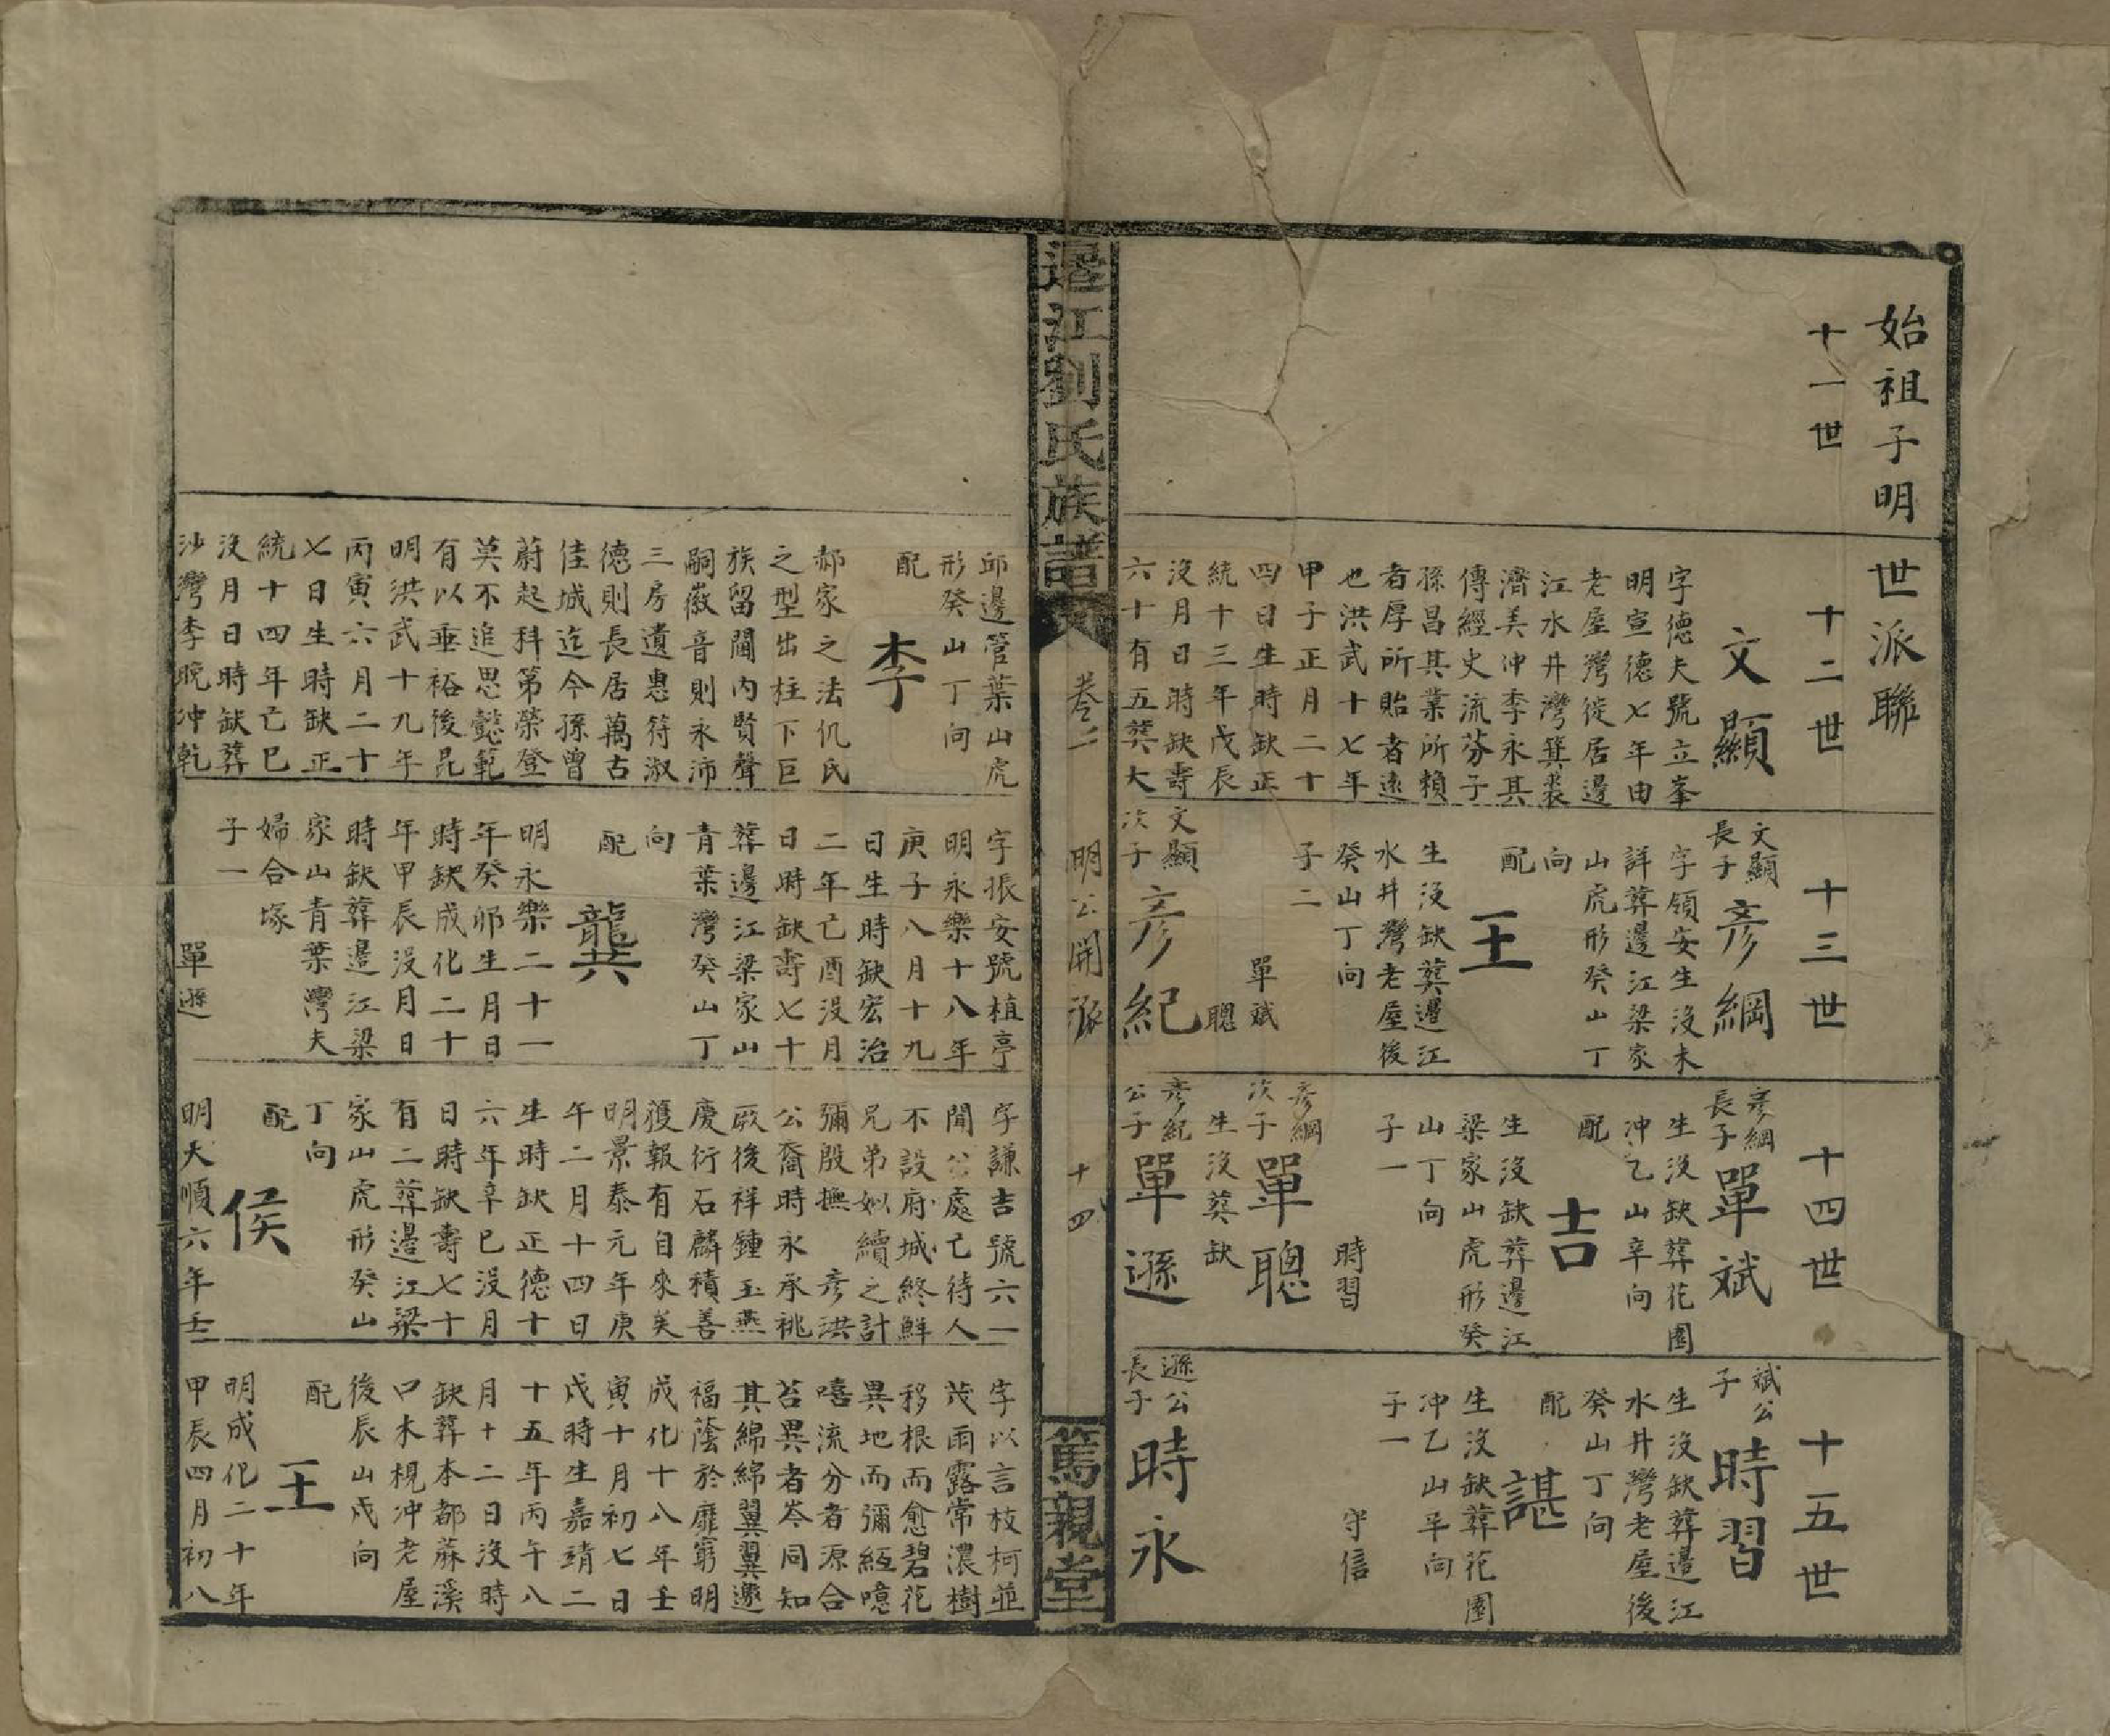 始祖子明世派聯
十一世
十二世
文顯
字德夫號立峯
明宣德七年由
老屋灣徙居邊
江水井灣箕裘
濟美冲李永其
傳經史流芬子
孫昌其業所賴
者厚所貽者遠
也洪武十七年
甲子正月二十
四日生時缺正
統十三年戊辰
沒月日時缺壽
六十有五葬大
十三世
文顯
長子
彥綱
字領安生沒未
詳葬邊江梁家
山虎形癸山丁
向
配
王
生沒缺葬邊江
水井灣老屋後
癸山丁向
子二
單斌
聰
文顯
次子
彥紀
十四世
彥綱
長子
單斌
生沒缺葬花園
冲乙山辛向
配
吉
生沒缺葬邊江
梁家山虎形癸
山丁向
子一
時習
彥綱
次子
單聰
生沒葬缺
彥紀
公子
單遜
十五世
斌公
子
時習
生沒缺葬邊江
水井灣老屋後
癸山丁向
配
諶
生沒缺葬花園
冲乙山辛向
子一
守信
遜公
長子
時永
邊江劉氏族譜
卷二
明公開派
十四
篤親堂
邱邊管葉山虎
形癸山丁向
配
李
郝家之法仉氏
之型出柱下巨
族留閫內賢聲
嗣徽音則永沛
三房遺惠符淑
德則長居萬古
佳城迄今孫曾
蔚起科第榮登
莫不追思懿範
有以垂裕後昆
明洪武十九年
丙寅六月二十
七日生時缺正
統十四年己巳
沒月日時缺葬
沙灣李晚冲乾
字振安號植亭
明永樂十八年
庚子八月十九
日生時缺宏治
二年己酉沒月
日時缺壽七十
葬邊江梁家山
青葉灣癸山丁
向
配
龔
明永樂二十一
年癸卯生月日
時缺成化二十
年甲辰沒月日
時缺葬邊江梁
家山青葉灣夫
婦合塚
子一
單遜
字謙吉號六一
聞公處己待人
不設府城終鮮
兄弟姒續之計
彌殷撫彥洪
公裔時永承祧
厥後祥鍾玉燕
慶衍石麟積善
獲報有自來矣
明景泰元年庚
午二月十四日
生時缺正德十
六年辛巳沒月
日時缺壽七十
有二葬邊江梁
家山虎形癸山
丁向
配
侯
明天順六年壬
字以言枝柯並
茂雨露常濃樹
移根而愈碧花
異地而彌紅噫
嘻流分者源合
苔異者岑同知
其綿綿翼翼邀
福蔭於靡窮明
成化十八年壬
寅十月初七日
戌時生嘉靖二
十五年丙午八
月十二日沒時
缺葬本都蔴溪
口木梘冲老屋
後辰山戌向
配
王
明成化二十年
甲辰四月初八